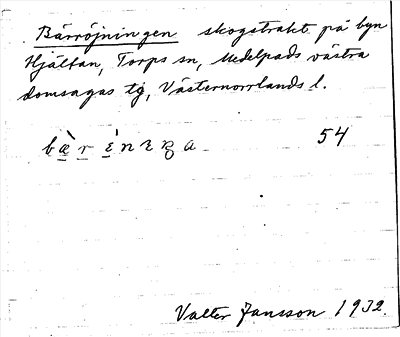 Bärröjningen skogstrakt på byn
Hjältan, Torps sn, Medelpads västra
domsagas tg, Västernorrlands l.
54
Valter Jansson 1932.